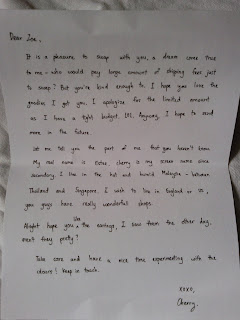 Dear Zoe,
It is a pleasure to swap with you, a dream come true
to me - who would pay large amount of shipping fees just
to swap? But you're kind enough to. I hope you love the
goodies I got you, I apologize for the limited amount
as I have a tight budget. LOL. Anyway, I hope to send
more in the future.
Let me tell you the part of me that you haven't know.
My real name is Esther, cherry is my screen name since
secondary. I live in the hot and humid Malaysia - between
Thailand and Singapore. I wish to live in England or US,
you guys have really wonderful shops.
Alright hope you like the earrings, I saw them the other day,
aren't they pretty?
Take care and have a nice time experimenting with the
colours! Keep in touch.
xoxo,
Cherry.